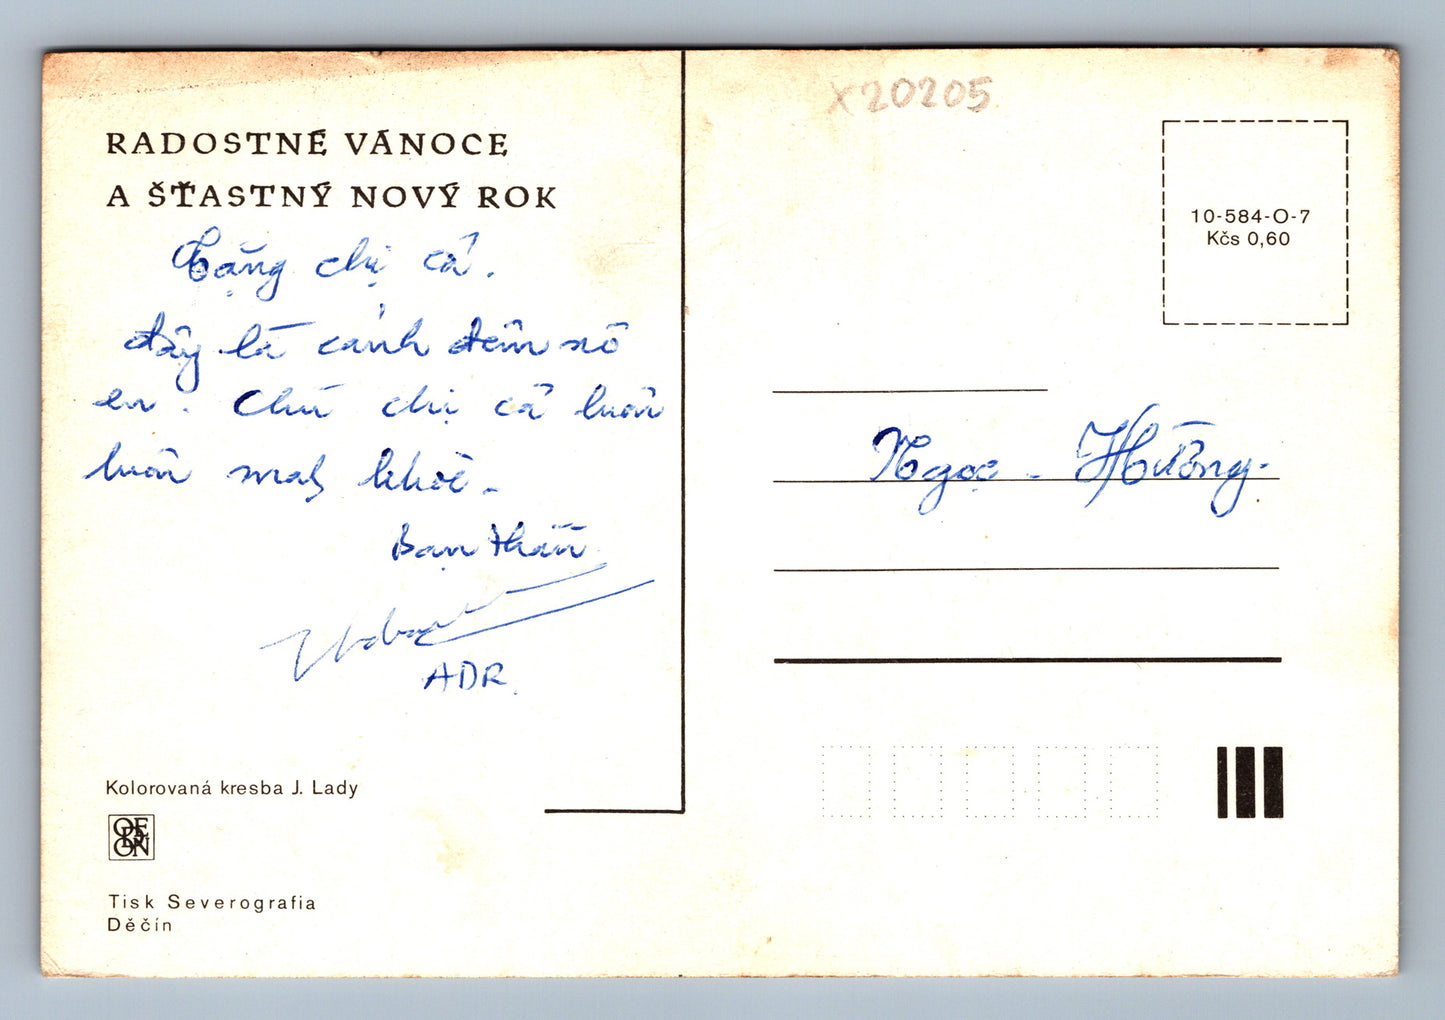 RADOSTNÉ VÁNOCE
A ŠŤASTNÝ NOVÝ ROK
Tặng chị cả.
Đây là cảnh đêm nô
en. Chú chị cả luôn
luôn mah khỏe.
Bạn thân
ADR.
Kolorovaná kresba J. Lady
ODEON
Tisk Severografia
Děčín
X20205
10-584-O-7
Kčs 0,60
Ngọc - Hường.